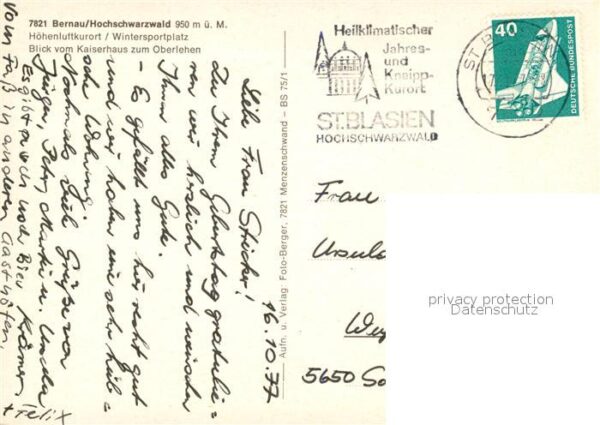 7821 Bernau/Hochschwarzwald 950 m ü. M.
Höhenluftkurort / Wintersportplatz
Blick vom Kaiserhaus zum Oberlehen
16.10.77
Liebe Frau Stricker!
Zu Ihrem Geburtstag gratulie=
ren wir herzlich und wünschen
Ihnen alles Gute.
- Es gefällt uns hier recht gut
und wir haben eine sehr hüb=
sche Wohnung.
Nochmals viel Grüße von
Jürgen, Petr, Martin u. Ursula
Krämer
+ Felix
Es gibt auch und Bier
vom Faß in anderen Gasthöfen.
Aufn. u. Verlag: Foto-Berger, 7821 Menzenschwand – BS 75/1
Heilklimatischer
Jahres-
und
Kneipp-
Kurort
ST. BLASIEN
HOCHSCHWARZWALD
40
DEUTSCHE BUNDESPOST
Frau
Ursula
5650 So
privacy protection
Datenschutz